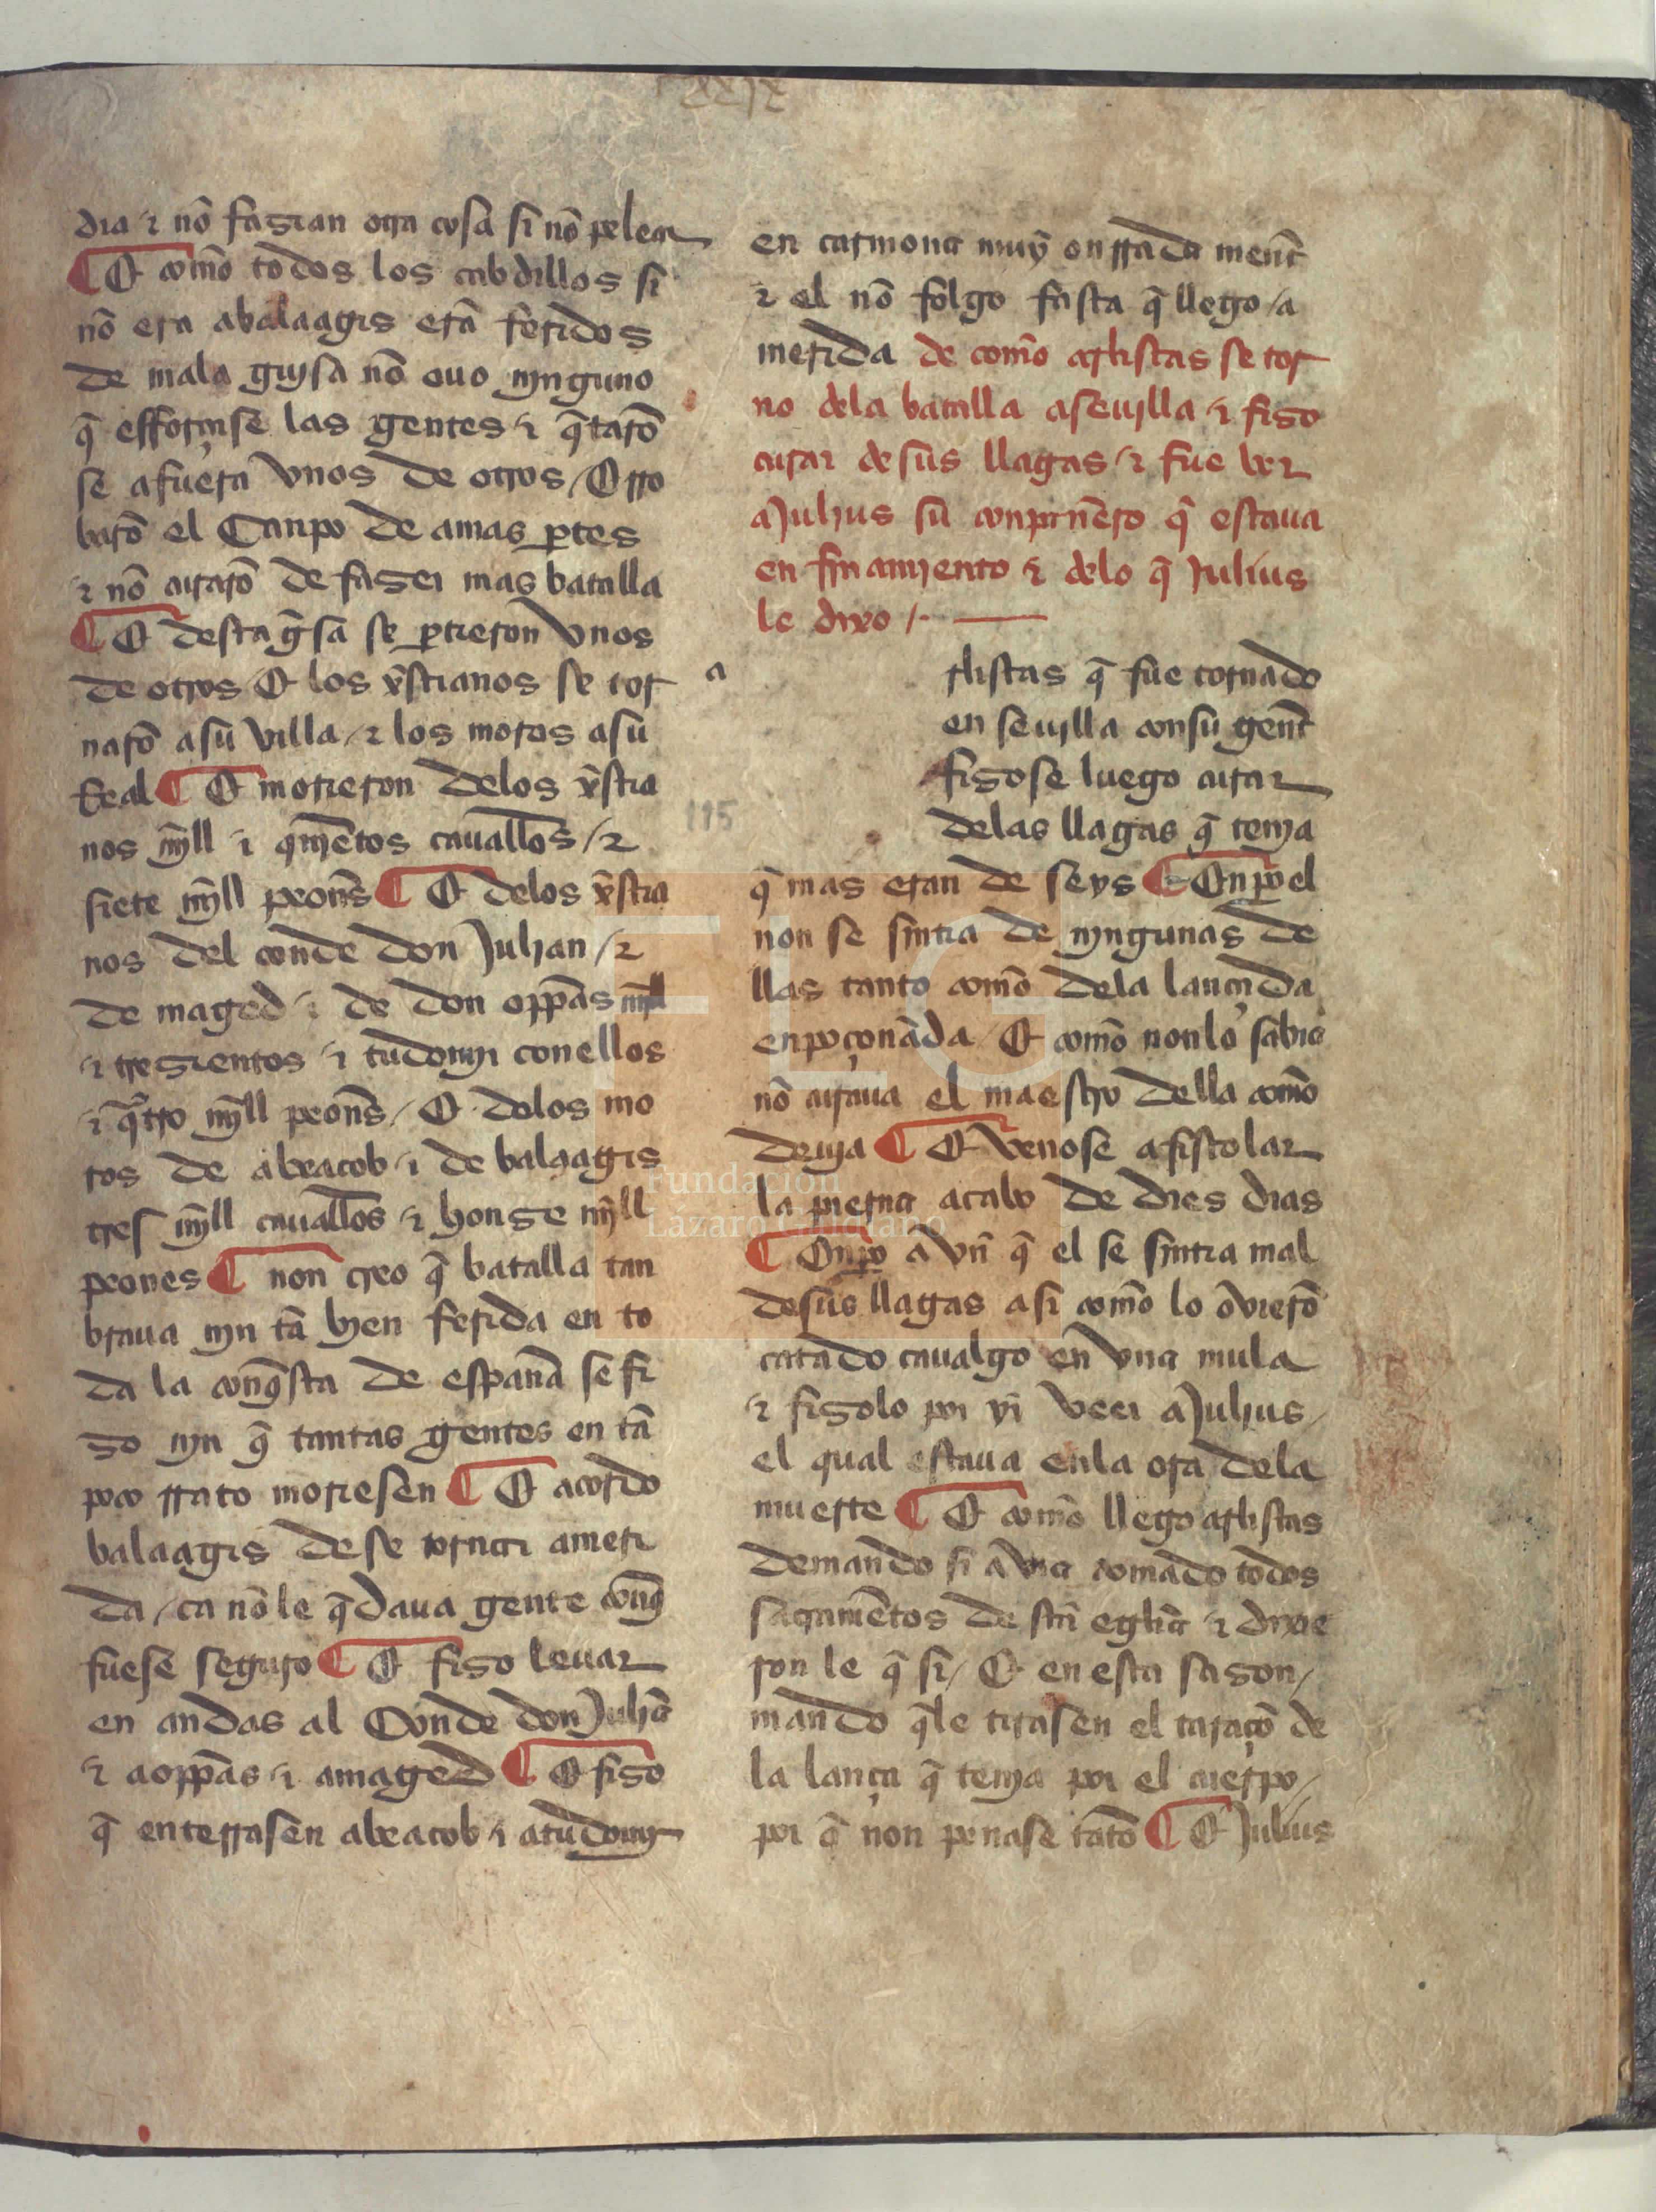 dia ⁊ nõ fazian otra cosa si nõ pelear
¶ E comõ todos los cabdillos si
nõ era abalaagis erã feridos
de mala guisa nõ ouo njnguno
q̃ efforçase las gentes ⁊ q̃tarõ
se afuera vnos de otros / E rro
barõ el Canpo de amas ꝑtes
⁊ nõ curarõ de fazer mas batalla
¶ E desta gͥsa se ꝑtieron vnos
de otros / E los xp̃stianos se tor
narõ asu villa / ⁊ los moros asu
Real ¶ E morieron delos xp̃stia
nos mjll ⁊ qnjẽtos cauallos / ⁊
siete mjll peones ¶ E delos xp̃stia
nos del conde don Julian / ⁊
de maged ⁊ de don oppãs mjll
⁊ trezientos ⁊ tudomjr conellos
⁊ qͣtro mjll peones / E delos mo
ros de abeacob ⁊ de balaagis
tres mjll cauallos ⁊ honze mjll
peones ¶ non creo q̃ batalla tan
braua njn tã bien ferida en to
da la conqͥsta de españa se fi
zo njn q̃ tantas gentes en tã
poco rrato moriesen ¶ E acordo
balaagis de se tornar a meri
da / ca nõ le q̃daua gente conq̃
fuese seguro ¶ E fizo leuar
en andas al Conde don Juliã
⁊ aoppãs ⁊ amaged ¶ E fizo
q̃ enterrasen abeacob ⁊ atudomjr
en carmona muy onrrada ment̃
⁊ el nõ folgo fasta q̃ llego / a
merida de comõ arlistas se tor
no dela batalla aseuilla ⁊ fizo
curar de sus llagas ⁊ fue ver
aJulius su conpañero q̃ estaua
en finamjento ⁊ delo q̃ Julius
le dixo /·
a
rlistas q̃ fue tornado
en seujlla consu gent̃
fizose luego curar
delas llagas q̃ tenja
q̃ mas eran de seys ¶ Enꝑo el
non se sintia de njngunas de
llas tanto comõ dela lançada
enpoçonada / E comõ nonlo sabia
nõ curaua el maestro della comõ
deuja ¶ E venose afistolar
la pierna acabo de dies dias
¶ Enꝑo avñ q̃ el se sintia mal
desus llagas asi comõ lo ovierõ
catado caualgo en vna mula
⁊ fizolo por yr veer aJulius /
el qual estaua enla ora dela
muerte ¶ E comõ llego arlistas
demando si avia tomado todos
sacramẽtos de stã eglia ⁊ dixie
ron le q̃ si / E en esta sazon /
mando q̃le tirasen el taraçõ de
la lança q̃ tenja por el cuerpo /
por q̃ non penase tãtõ ¶ E Julius
115
FLG
Fundación
Lázaro Galdiano